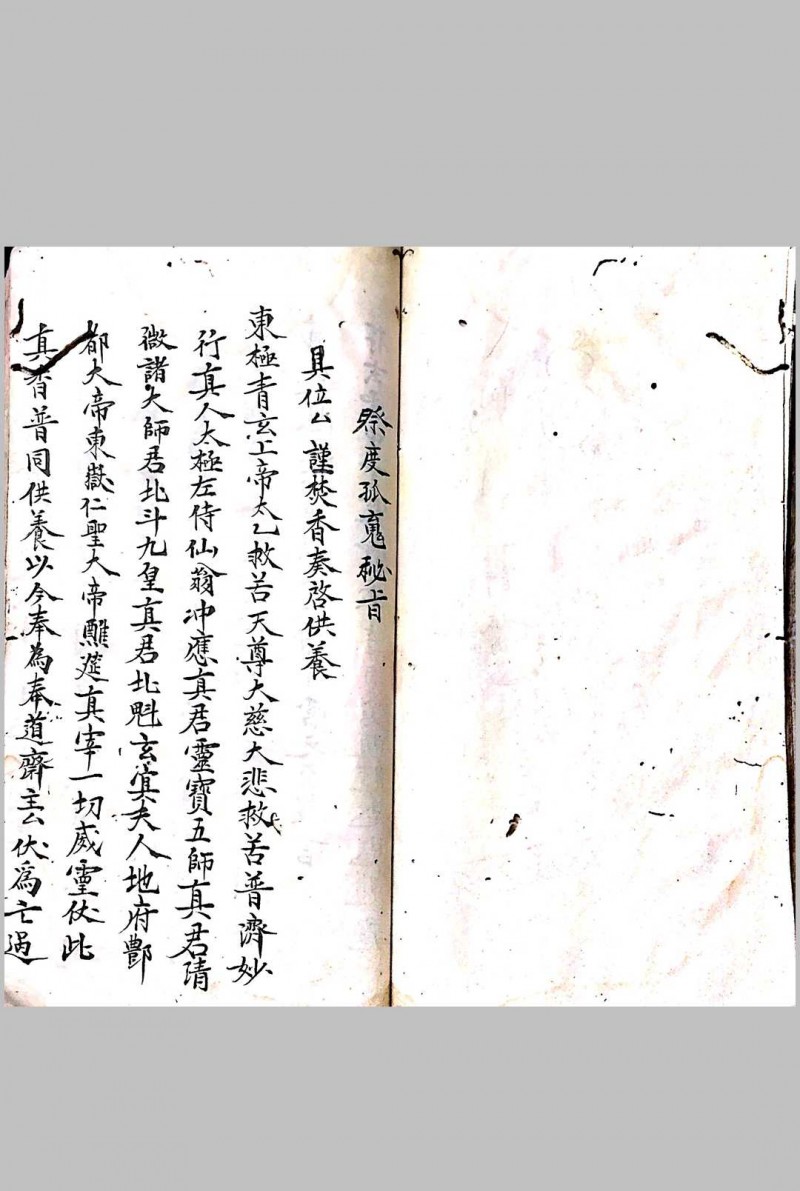 祭度孤䰟秘旨
具位厶謹焚香奏啓供養
東極青玄上帝太乙救苦天尊大慈大悲救苦普濟妙
行真人太極左侍仙翁冲應真君靈寶五師真君清
微諸大師君北斗九皇真君北魁玄冥夫人地府酆
都大帝東嶽仁聖大帝醮筵真宰一切威靈仗此
真香普同供養以今奉為奉道齋主厶伏為亡過